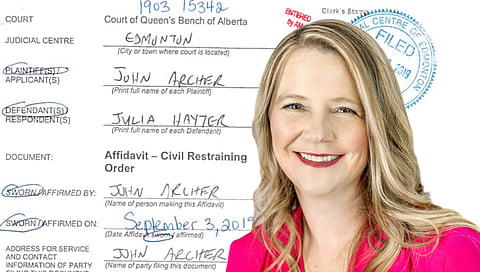 1903 15342
COURT Court of Queen's Bench of Alberta
ENTERED
by AM
Clerk's
JUDICIAL CENTRE EDMONTON
(City or town where court is located)
CENTRE OF EDMONTON
FILED
2019
PLAINTIFF(S)/
APPLICANT(S) JOHN ARCHER
(Print full name of each Plaintiff)
DEFENDANT(S)/
RESPONDENT(S) JULIA HAYTER
(Print full name of each Defendant)
DOCUMENT: Affidavit – Civil Restraining
Order
SWORN/AFFIRMED BY: JOHN ARCHER
(Name of person making this Affidavit)
SWORN/AFFIRMED ON: September 3, 2019
(Date Affidavit sworn/ affirmed)
ADDRESS FOR SERVICE
AND CONTACT JOHN ARCHER
INFORMATION OF PARTY (Name of party filing this document)
FILING THIS DOCUMENT